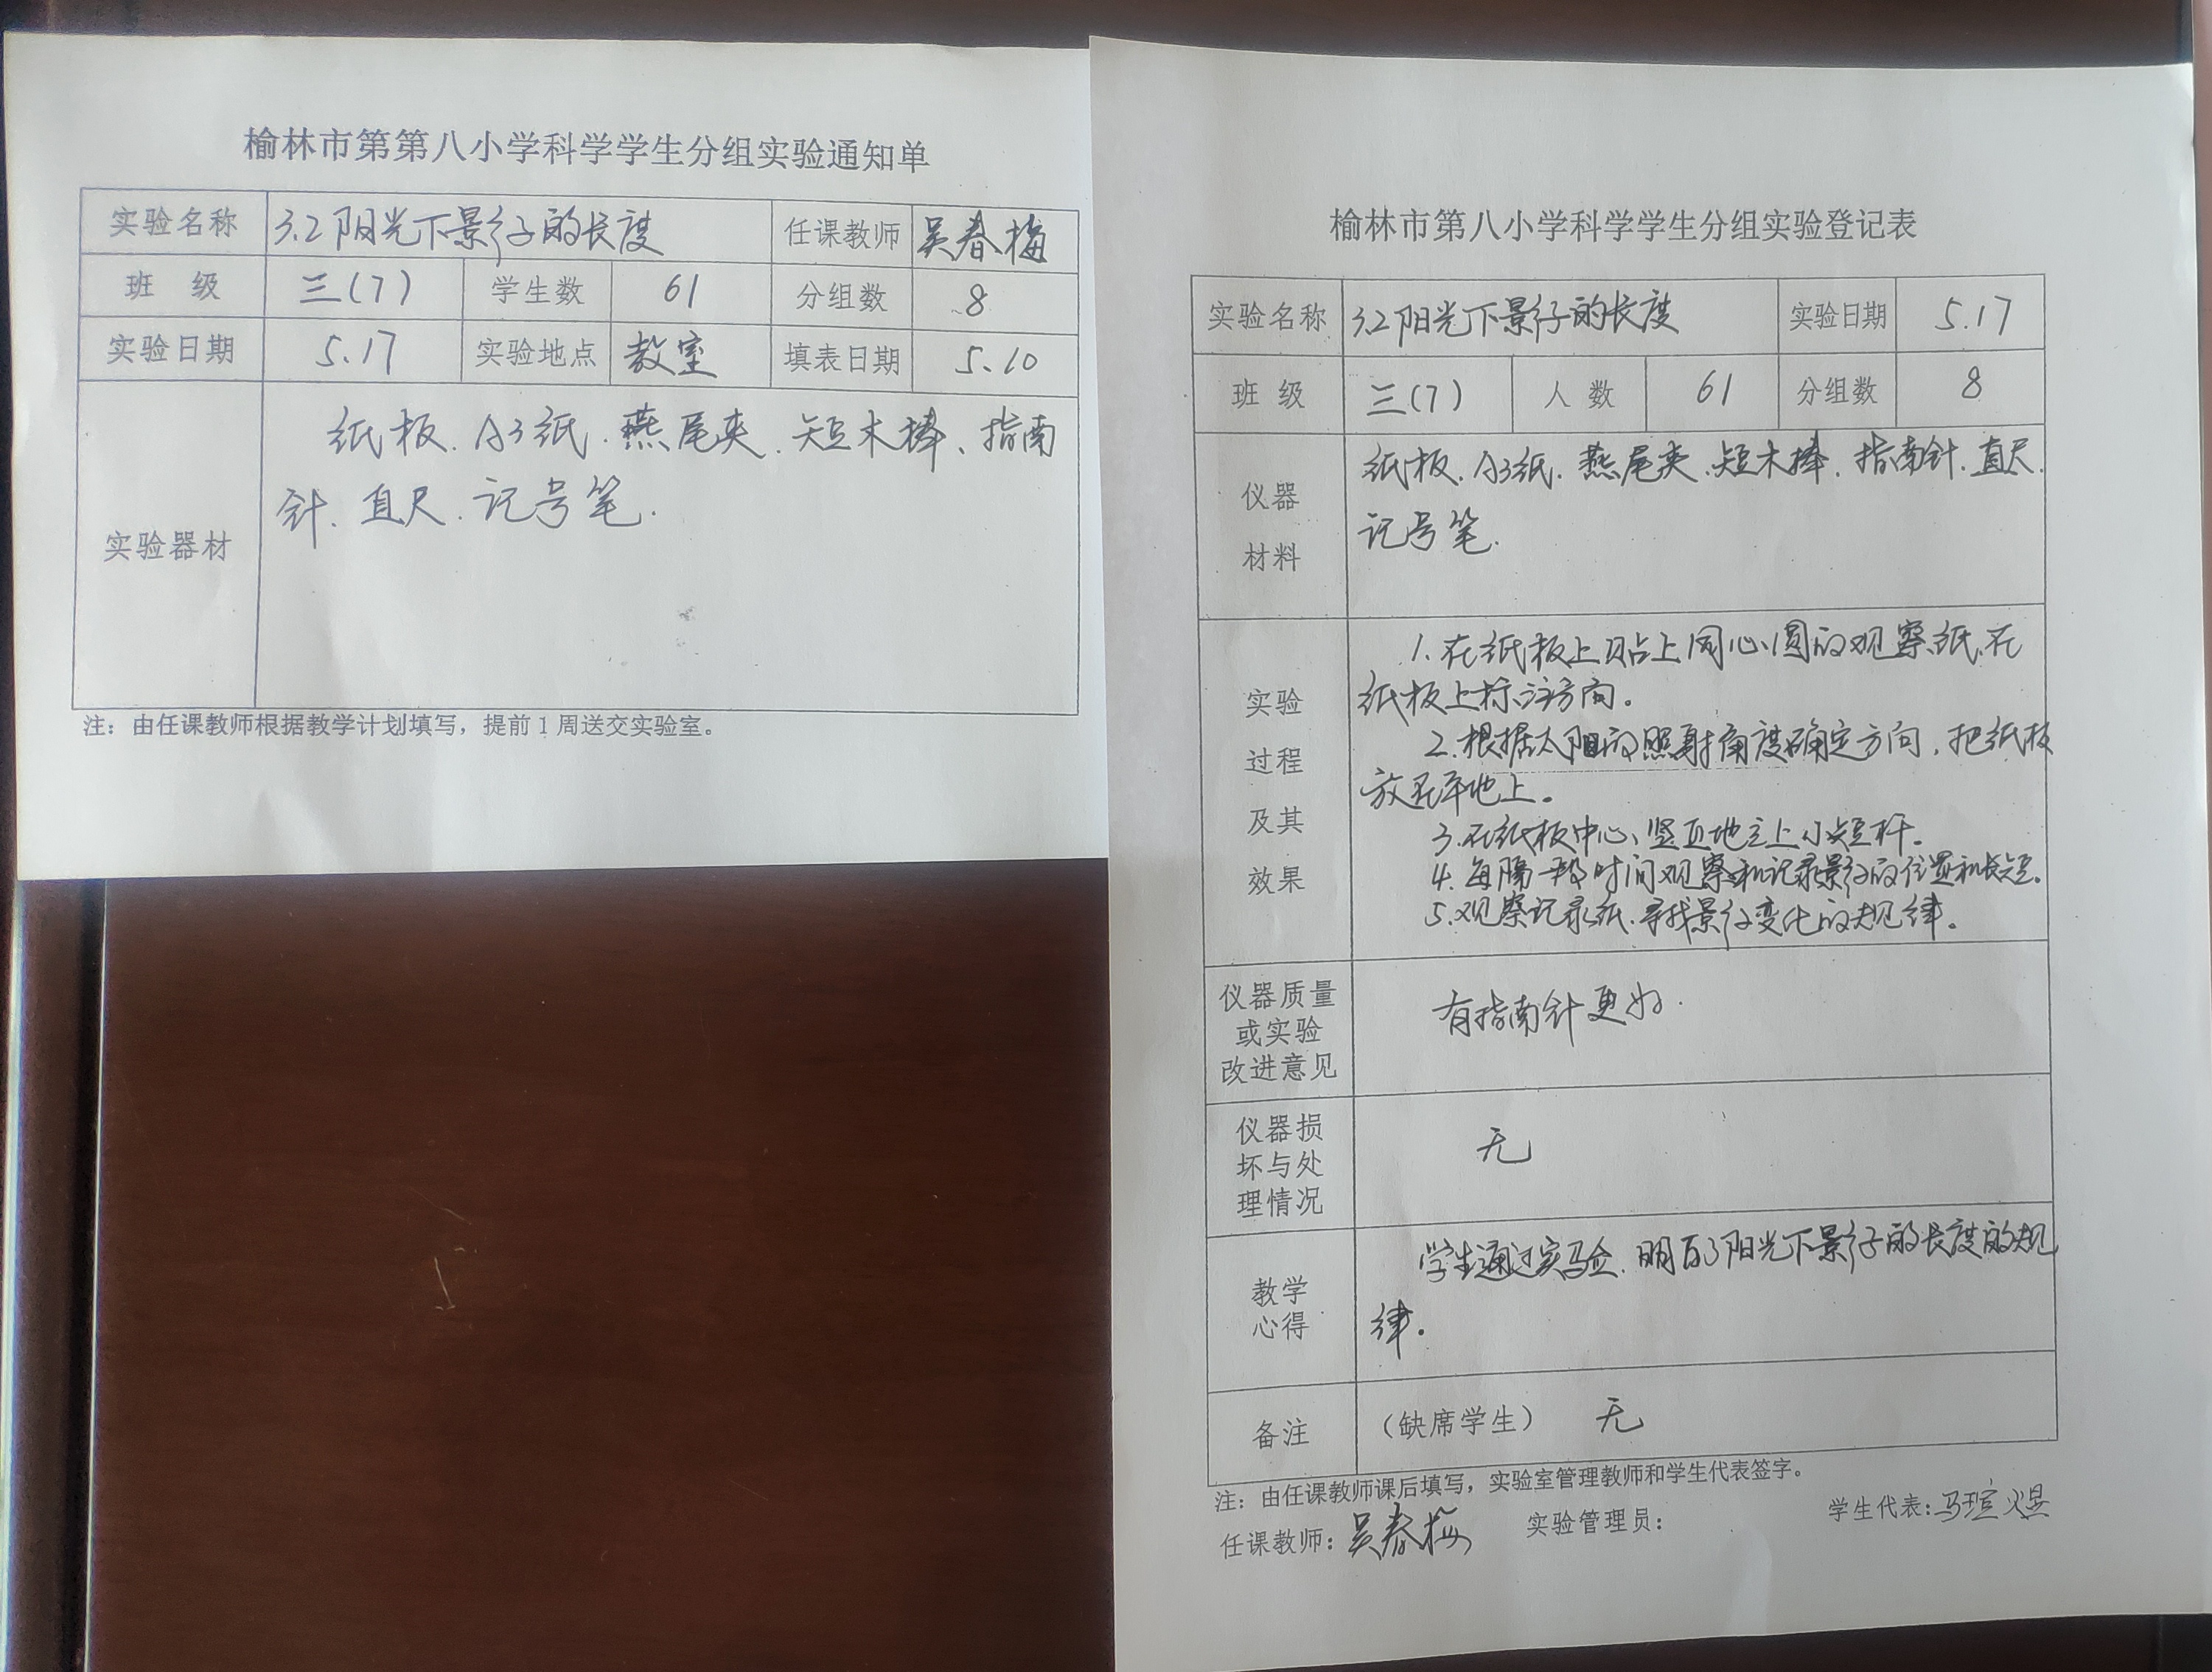 榆林市第第八小学科学学生分组实验通知单
实验名称 3.2阳光下影子的长度 任课教师 吴春梅
班 级 三(7) 学生数 61 分组数 8
实验日期 5.17 实验地点 教室 填表日期 5.10
实验器材
纸板、A3纸、燕尾夹、短木棒、指南
针、直尺、记号笔.
注：由任课教师根据教学计划填写，提前1周送交实验室。
榆林市第八小学科学学生分组实验登记表
实验名称 3.2阳光下影子的长度 实验日期 5.17
班 级 三(7) 人 数 61 分组数 8
仪器
材料
纸板、A3纸、燕尾夹、短木棒、指南针、直尺、
记号笔.
实验
过程
及其
效果
1.在纸板上贴上同心圆的观察纸,在
纸板上标注方向。
2.根据太阳的照射角度确定方向，把纸板
放在平地上。
3.在纸板中心、竖直地立上小短杆。
4.每隔一段时间观察和记录影子的位置和长短。
5.观察记录纸.寻找影子变化的规律。
仪器质量
或实验
改进意见
有指南针更好.
仪器损
坏与处
理情况
无
教学
心得
学生通过实验.明白了阳光下影子的长度的规
律。
备注 （缺席学生） 无
注：由任课教师课后填写，实验室管理教师和学生代表签字。
任课教师：吴春梅 实验管理员： 学生代表:马瑄煜